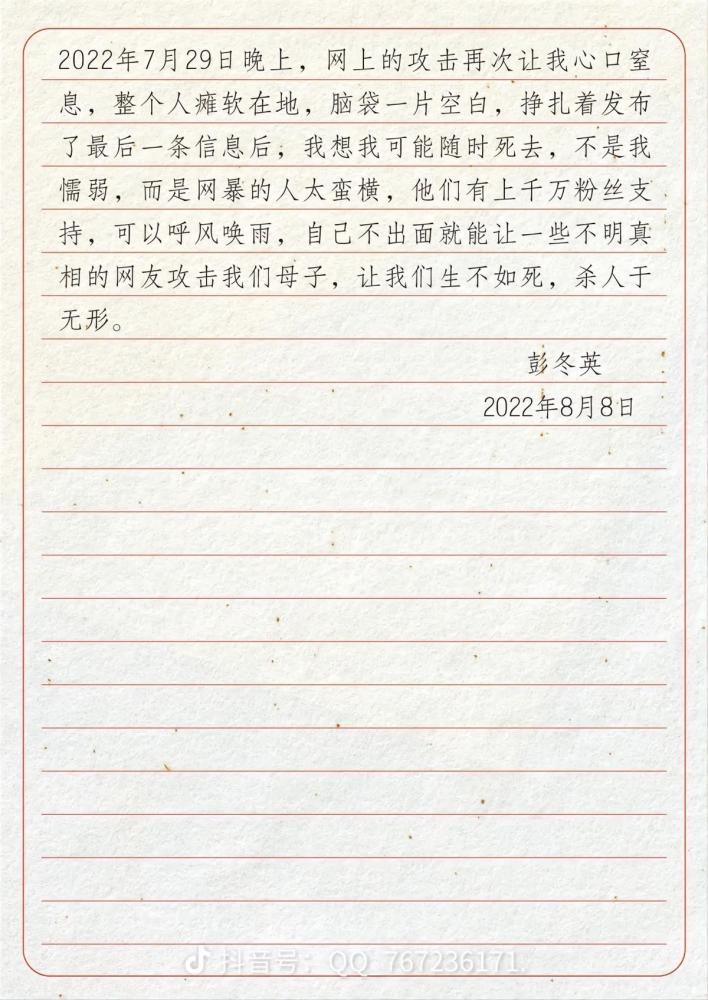 2022年7月29日晚上，网上的攻击再次让我心口窒
息，整个人瘫软在地，脑袋一片空白，挣扎着发布
了最后一条信息后，我想我可能随时死去，不是我
懦弱，而是网暴的人太蛮横，他们有上千万粉丝支
持，可以呼风唤雨，自己不出面就能让一些不明真
相的网友攻击我们母子，让我们生不如死，杀人于
无形。
彭冬英
2022年8月8日
抖音号：QQ_767236171.